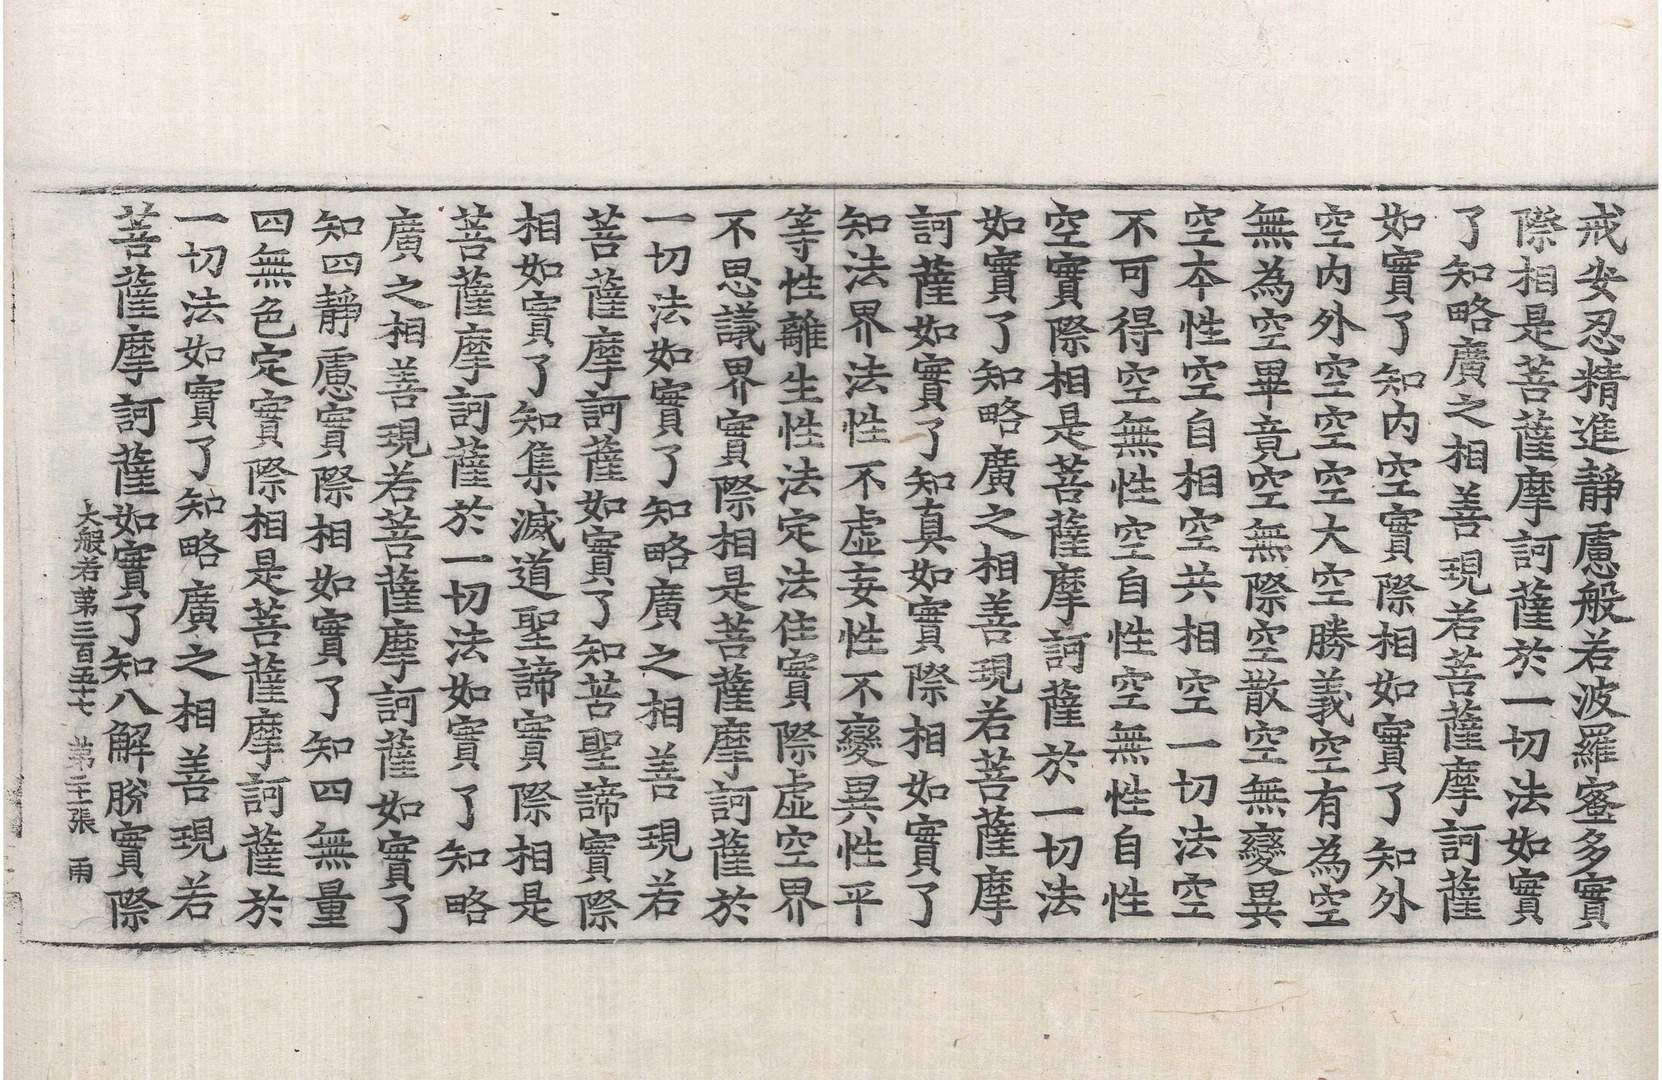 戒安忍精進靜慮般若波羅蜜多實
際相是菩薩摩訶薩於一切法如實
了知略廣之相善現若菩薩摩訶薩
如實了知內空實際相如實了知外
空內外空空空大空勝義空有為空
無為空畢竟空無際空散空無變異
空本性空自相空共相空一切法空
不可得空無性空自性空無性自性
空實際相是菩薩摩訶薩於一切法
如實了知略廣之相善現若菩薩摩
訶薩如實了知真如實際相如實了
知法界法性不虛妄性不變異性平
等性離生性法定法住實際虛空界
不思議界實際相是菩薩摩訶薩於
一切法如實了知略廣之相善現若
菩薩摩訶薩如實了知苦聖諦實際
相如實了知集滅道聖諦實際相是
菩薩摩訶薩於一切法如實了知略
廣之相善現若菩薩摩訶薩如實了
知四靜慮實際相如實了知四無量
四無色定實際相是菩薩摩訶薩於
一切法如實了知略廣之相善現若
菩薩摩訶薩如實了知八解脫實際
大般若第三百五十七 第二十一張 雨